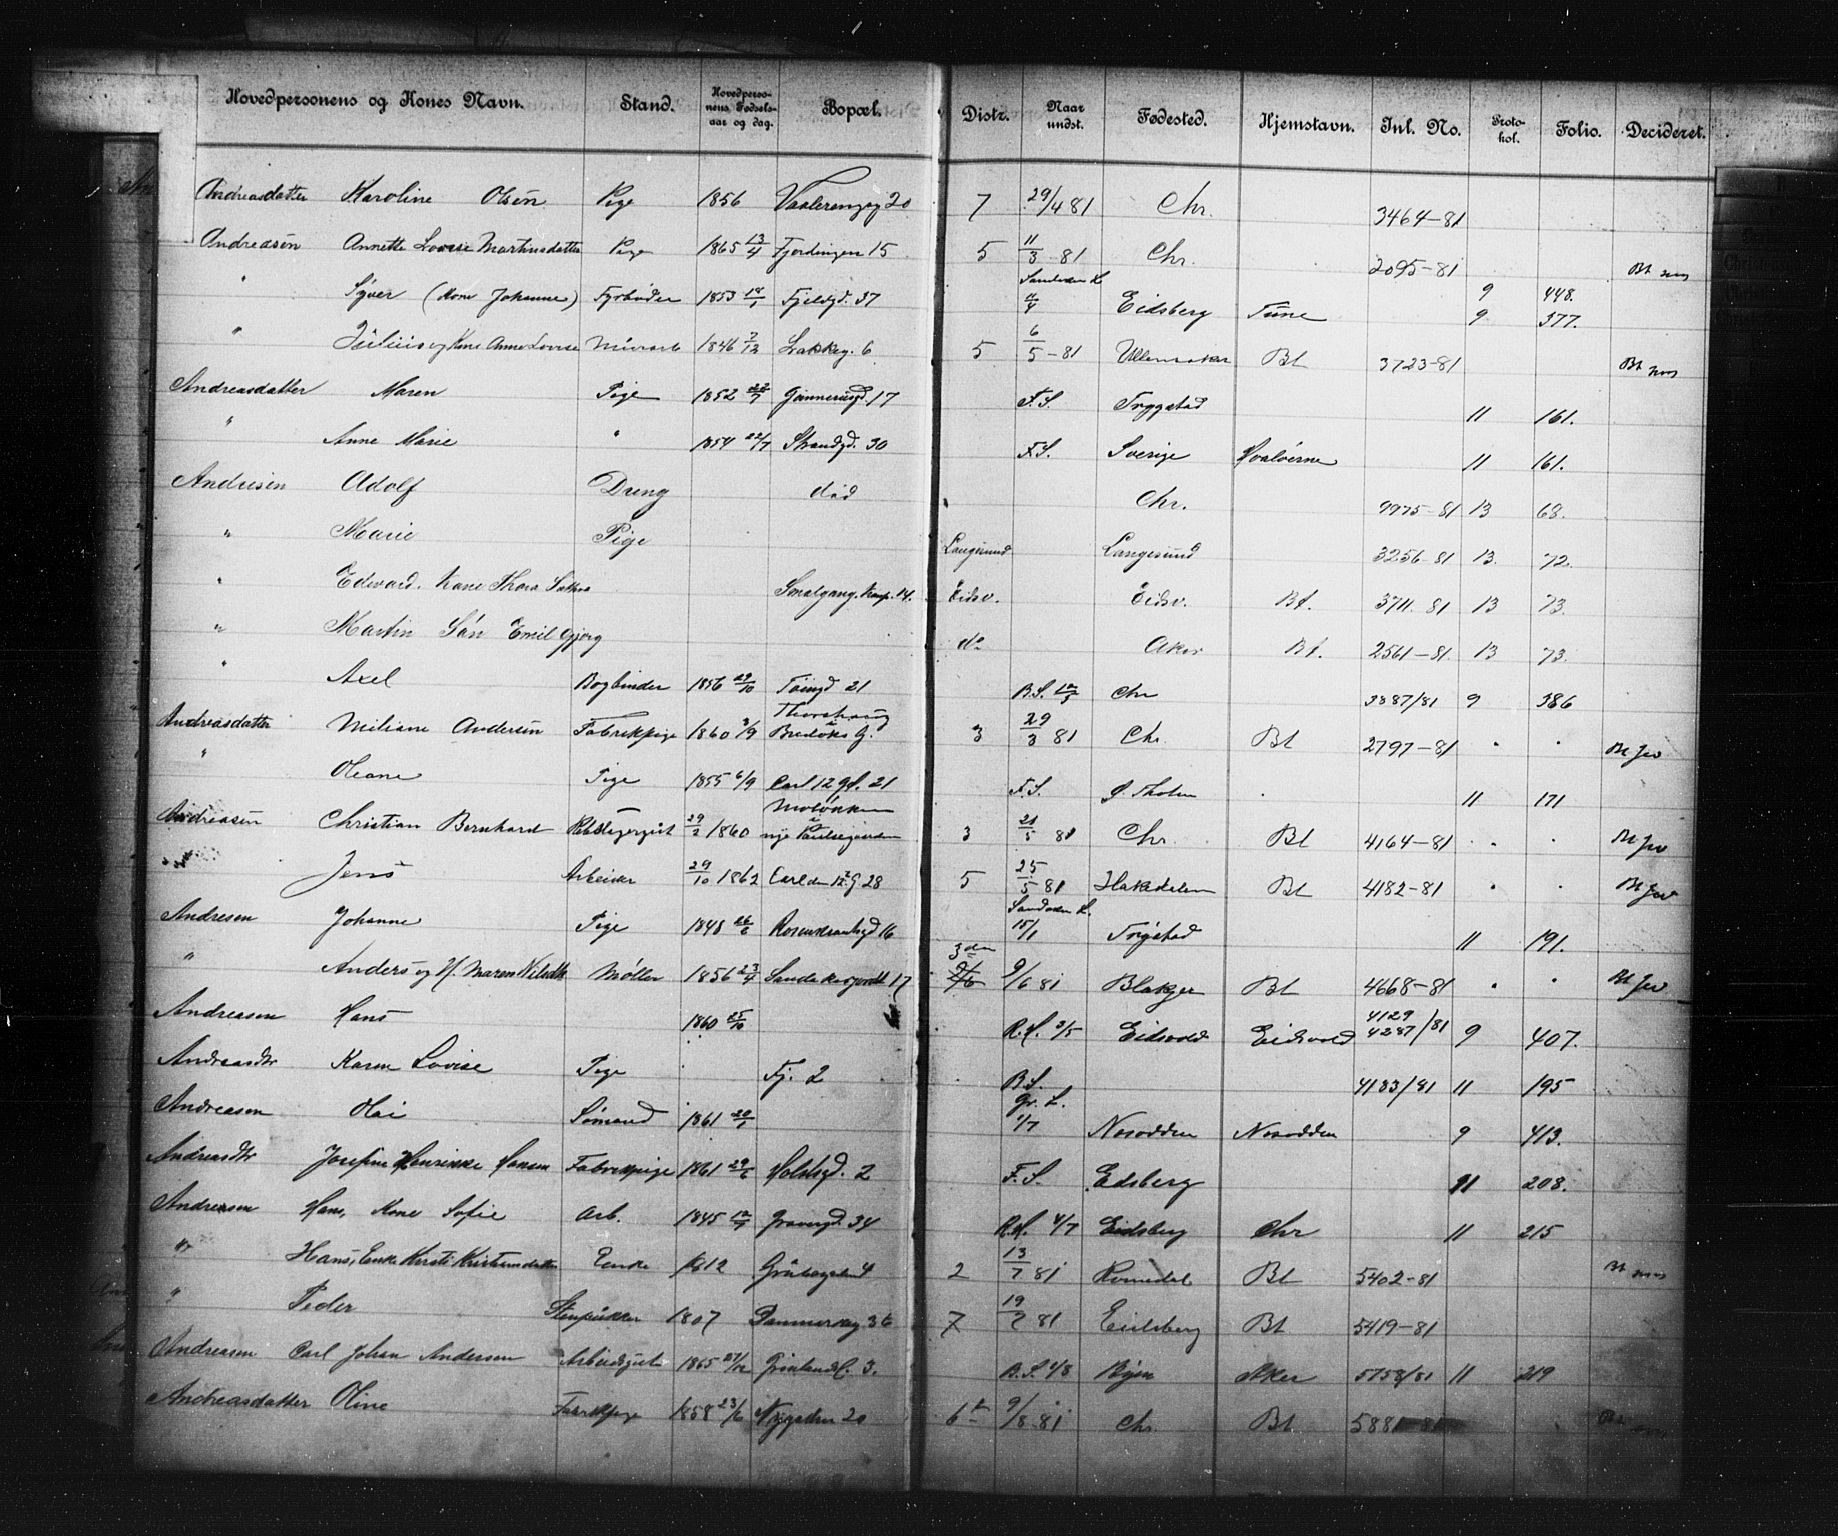 Hovedpersonens og Kones Navn. Stand. Hovedpersonens Fødselsaar og dag. Bopæl. Distr. Naar undst. Fødested. Hjemstavn. Jnl. No. Protokol. Folio. Decideret.
Andreasdatter Karoline Olsen Pige 1856 Vaalerengsg 20 7 29/4 81 Chr. 3464-81
Andreasen Annette Lovise Martinsdatter Pige 1865 13/4 Fjerdingen 15 5 11/3-81 Chr. 2095-81 Bt
" Syver (Kone Johanne) Fyrbøder 1853 18/1 Fjeldgd. 37 11/4 Eidsberg Tune 9 448. 9 377.
" Julius og Kone Anne Lovise Murarb 1846 7/12 Lakkeg. 6 5 6/5-81 Ullensaker Bt 3723-81 Bt
Andreasdatter Maren Pige 1852 Grønnerugd. 17 F.S. Trygstad 11 161.
" Anne Marie " 1854 22/7 Strandgd. 30 F.S. Sverige Hvaløerne 11 161.
Andresen Adolf Dreng død Chr. 9975-81 13 63.
" Marie Pige Langesund Langesund 3256-81 13. 72.
" Edvard. Kone Thora Smalgang. 14. Eidsv. Eidsv. Bt. 3711.81 13 73.
" Martin Søn Emil Gjerg do Aker Bt. 2561-81. 13 73.
" Axel Bogbinder 1856 29/10 Tøiengd 21 B.S. Chr 3887/81 9 386
Andreasdatter Miliane Andersen Fabrikpige 1860 3/9 Thorshaug Bredoks G. 3 29/3 81 Chr. Bt 2797-81 " " Bt Jw
" Oleane Pige 1855 6/9 Carl 12 gd. 21 F.S. Ø. Tholen 11 171
Andreasen Christian Bernhard 29/2 1860 nye 3 21/5 81 Chr. Bt 4164-81 " " Bt Jw
" Jens Arbeider 29/10 1862 Carl den 12 G 28 5 25/5 81 Hakedalen Bt 4182-81 " " Bt Jw
Andresen Johanne Pige 1848 26/6 Rosenkrantzgd 16 15/1 Trøgstad 11 191.
" Anders og H. Maren Nilsdtr Møller 1856 23/4 17 3die 9/6 81 Blakjer Bt 4668-81 " " Bt Jw
Andreasen Hans 1860 25/10 R.H. 3/5 Eidsvold Eidsvold 4129 4287/81 9 407.
Andreasdtr Karen Lovise Pige Fj. 2 B.S. 4133/81 11 195
Andreasen Olai Sømand 1861 20/1 Gr. L. 1/7 Nesodden Nesodden 9 413.
Andreasdtr Josefine Henrikke Hansen Fabrikpige 1861 29/6 Holstgd. 2 F.S. Edsberg 11 208.
Andreasen Hans, Kone Sofie Arb. 1845 12/7 Gravergd. 34 R.H. 4/7 Eidsberg Chr 11 215
" Hans, Enke Kersti Kristensdatter Enke 1812 Grübegaden 4 2 13/7 81 Romedal Bt 5402-81 Bt
" Peder Stenpikker 1807 Dammersveg 36 7 19/7 81 Eidsberg Bt 5419-81
Andreasen Carl Johan Andersen Arbeidsgut 1865 27/12 Grønland L. 3. B.S. 4/8 Aker 5758/81 11 219
Andreasdatter Oline Fabrikpige 1858 23/6 Nygaden 20 6te 9/8-81 Chr Bt 5881-81 Bt